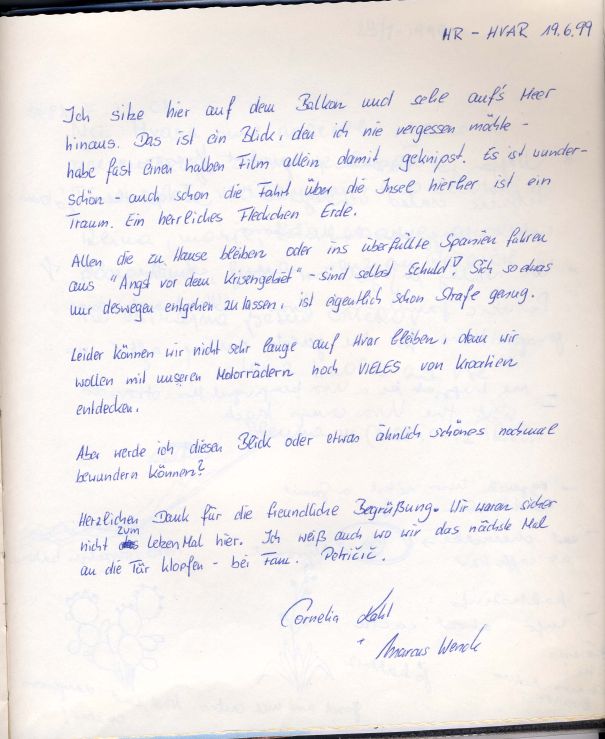 HR - HVAR 19.6.99
Ich sitze hier auf dem Balkon und sehe auf's Meer
hinaus. Das ist ein Blick, den ich nie vergessen möchte -
habe fast einen halben Film allein damit geknipst. Es ist wunder-
schön - auch schon die Fahrt über die Insel hierher ist ein
Traum. Ein herrliches Fleckchen Erde.
Allen die zu Hause bleiben oder ins überfüllte Spanien fahren
aus "Angst vor dem Krisengebiet" - sind selbst Schuld! Sich so etwas
nur deswegen entgehen zu lassen, ist eigentlich schon Strafe genug.
Leider können wir nicht sehr lange auf Hvar bleiben, denn wir
wollen mit unseren Motorrädern noch VIELES von Kroatien
entdecken.
Aber werde ich diesen Blick oder etwas ähnlich schönes nochmal
bewundern können?
Herzlichen Dank für die freundliche Begrüßung. Wir waren sicher
nicht zum letzen Mal hier. Ich weiß auch wo wir das nächste Mal
an die Tür klopfen - bei Fam. Petričić.
Cornelia
+ Marcus Wenck